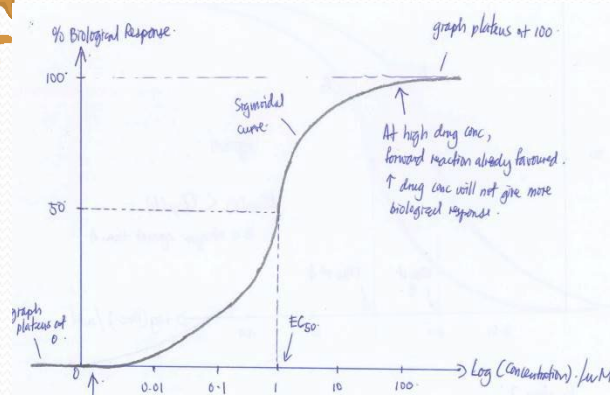 % Biological Response.
graph plateus at 100.
100.
Sigmoidal
curve.
At high drug conc,
forward reaction already favoured.
↑ drug conc will not give more
biological response.
50.
graph
plateus at
0.
EC50.
0
0.01
0.1
1
10
100.
Log (Concentration). /uM